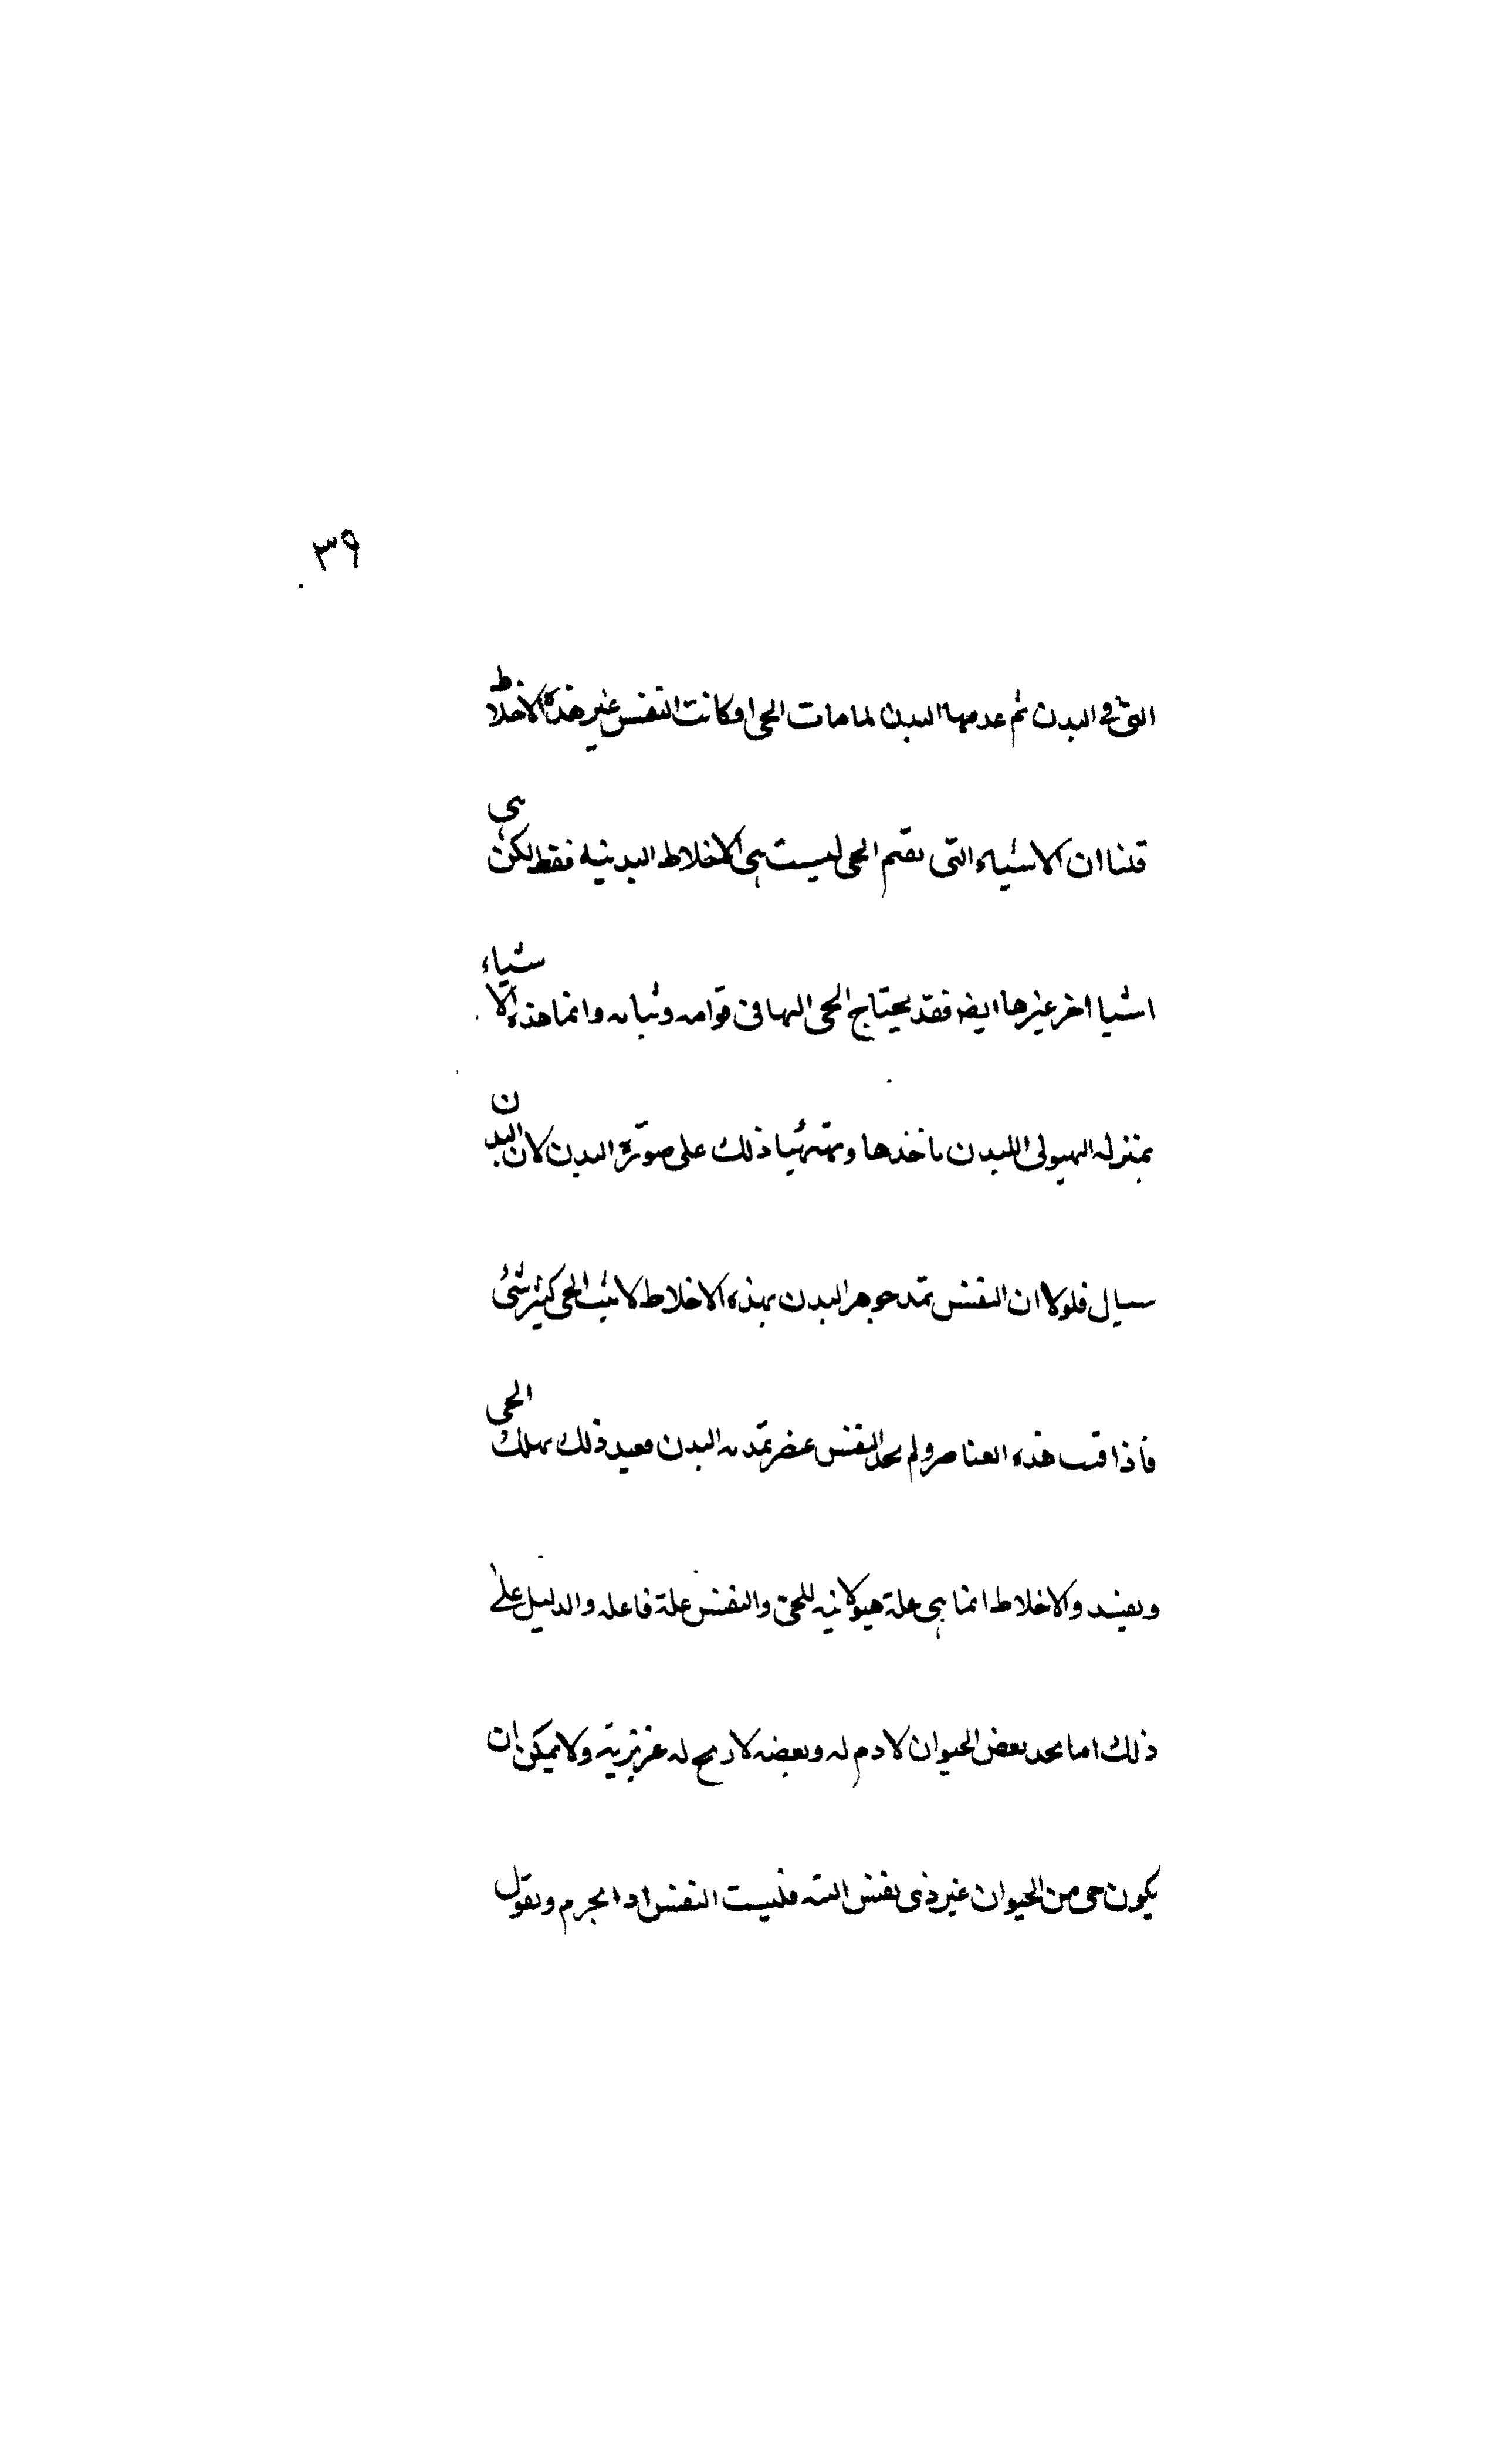 ٣٩
التى فى البدن ثم عدمها البدن لما مات الحى او كانت النفس غير هذه الاخلاط
قلنا ان الاشياء التى تقيم الحى ليست هى الاخلاط البدنيه فقط لكن هى
اشيا اخر غيرها ايضه فقد يحتاج الحى اليها فى قوامه وثباته وانما هذه الاشياء
بمنزله الهيولى للبدن ياخذها ويهيئها ذلك على صورة البدن لان البدن
سيال فلولا ان النفس تمد جوهر البدن بهذه الاخلاط لا يثبت الحى كثير شئ
فاذا فنيت هذه العناصر ولم يجد النفس عنصر تمد به البدن فعند ذلك يهلك الحى
ويفسد والاخلاط انما هى علة هيولانيه للحى والنفس علة فاعله والدليل على
ذلك اما نجد بعض الحيوان لا دم له وبعضه لا ريح له غريزية ولا يمكن ان
يكون حى من الحيوان غير ذى نفس البته فليست النفس اذا بجرم ونقول